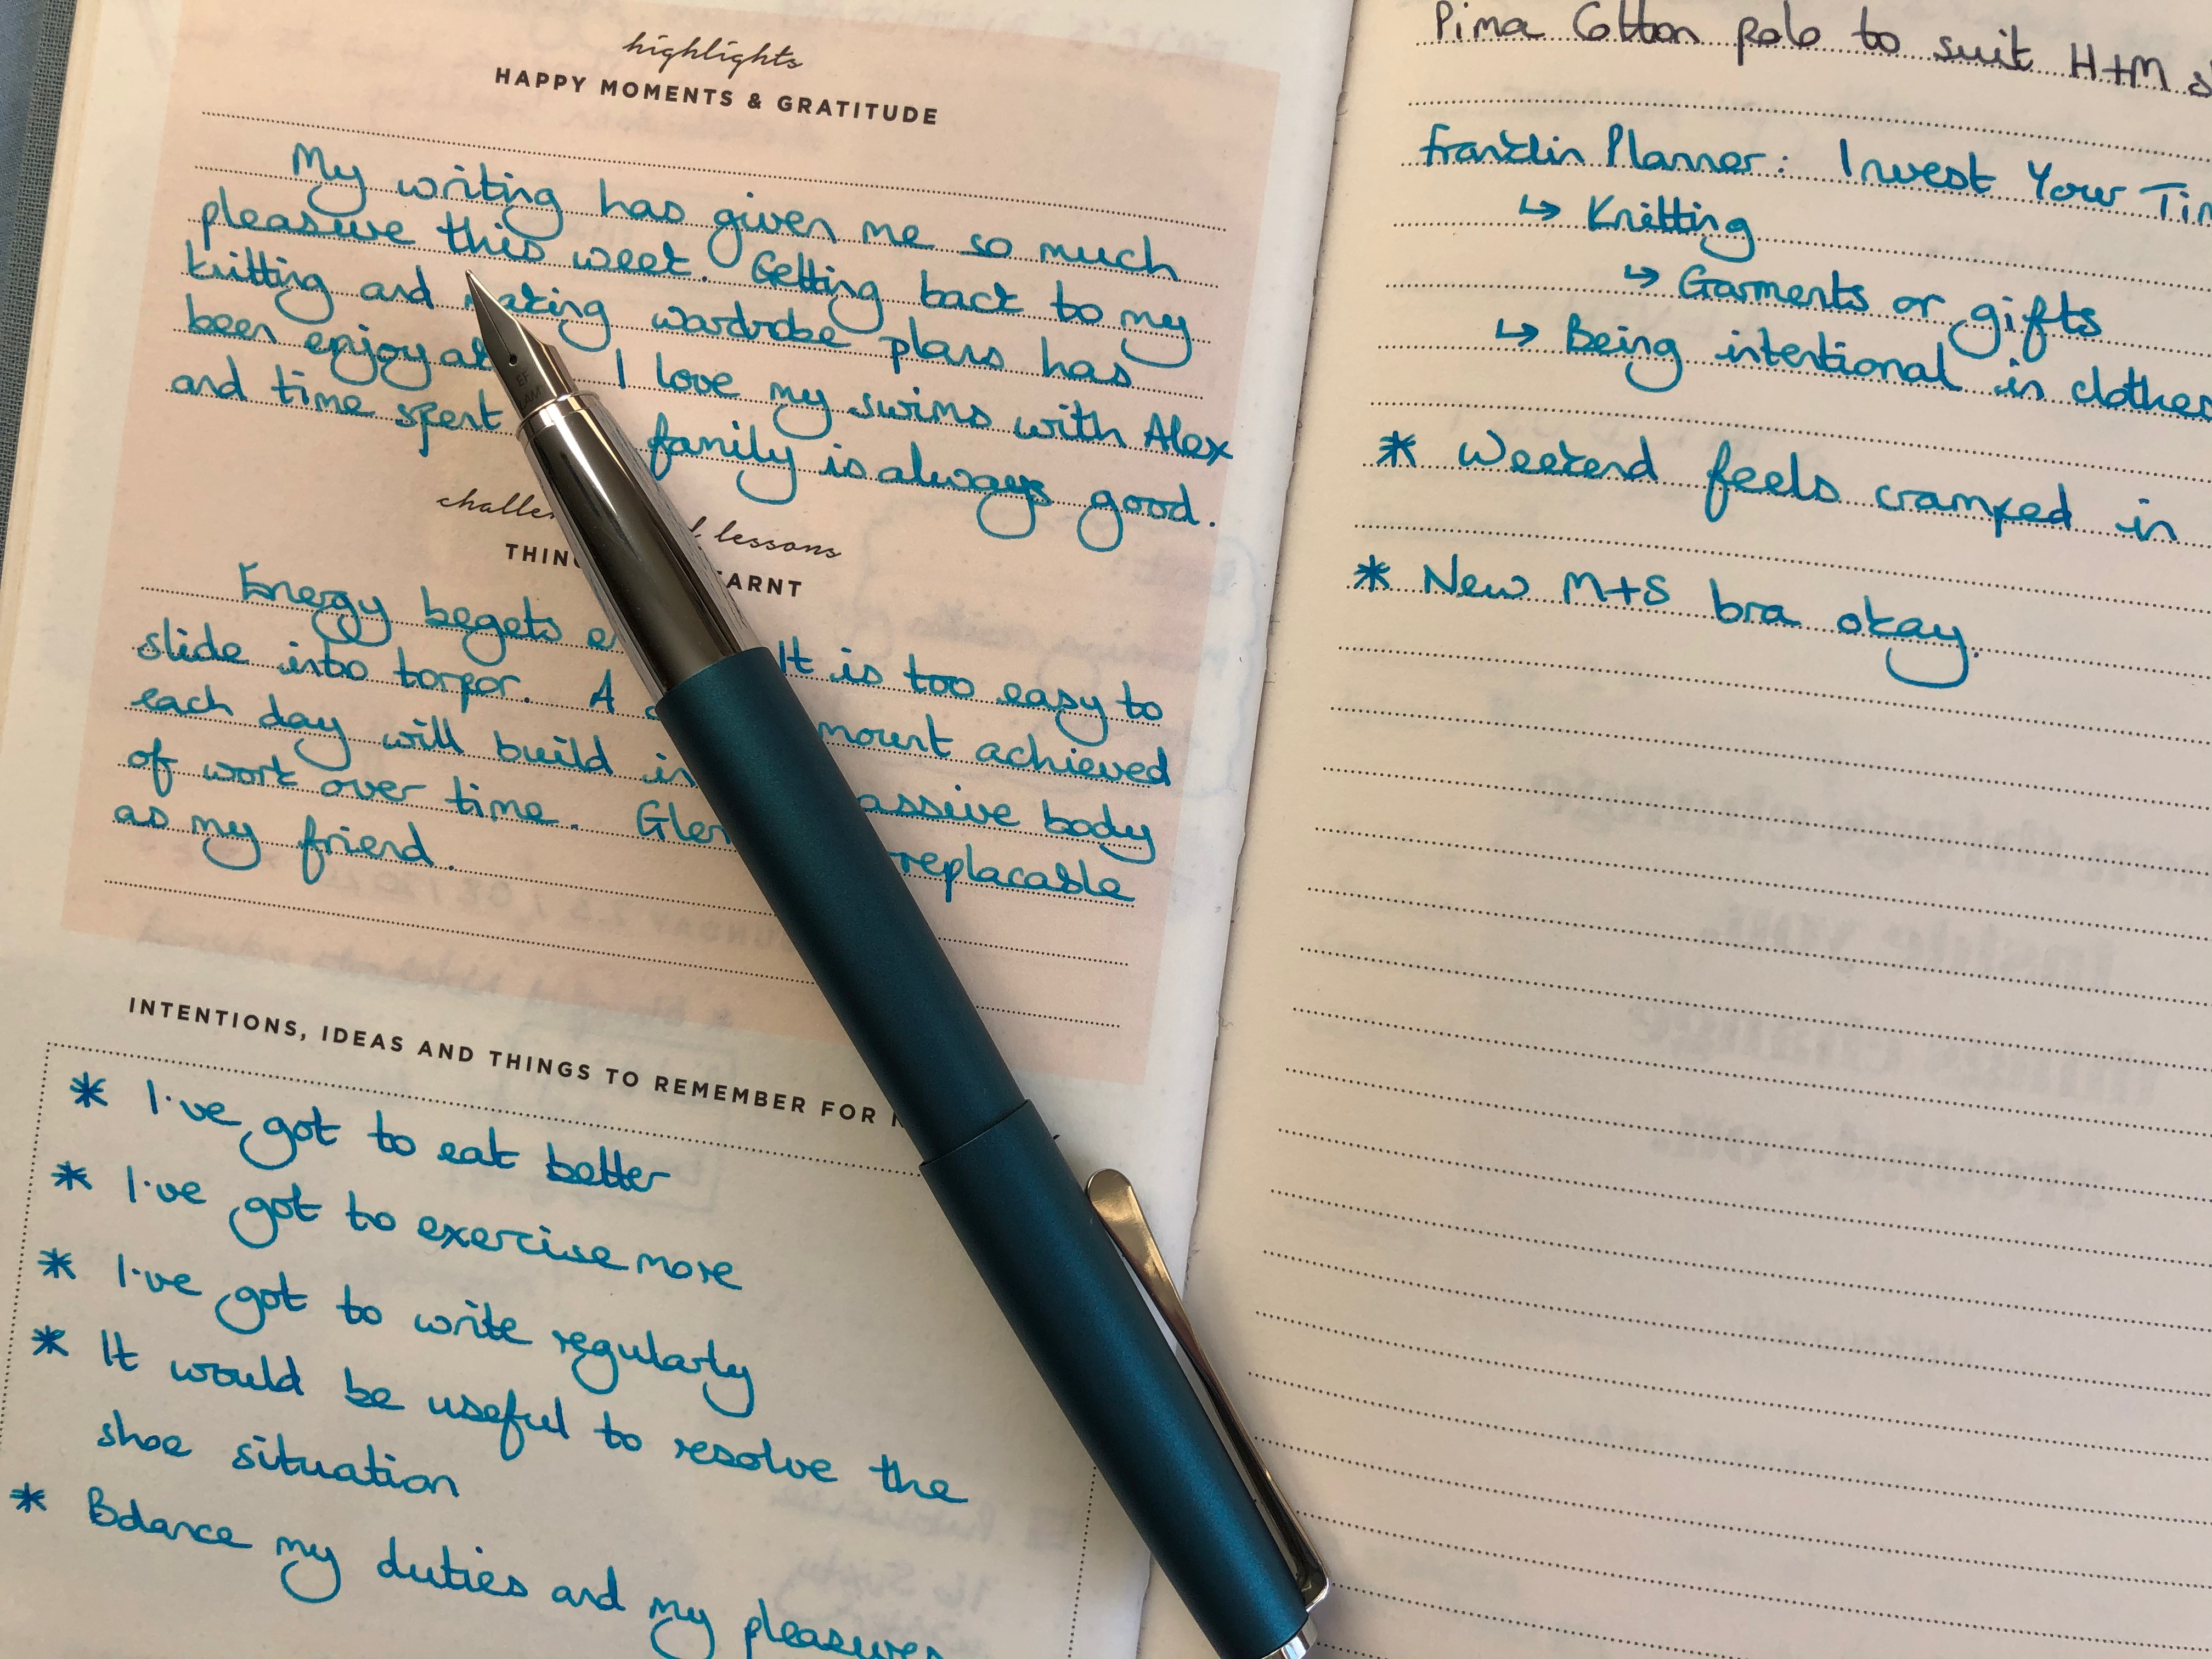 highlights
HAPPY MOMENTS & GRATITUDE
My writing has given me so much
pleasure this week. Getting back to my
knitting and making wardrobe plans has
been enjoyable I love my swims with Alex
and time spent family is always good.
lessons
Energy begets It is too easy to
slide into torpor. A amount achieved
each day will build massive body
of work over time. irreplacable
as my friend.
INTENTIONS, IDEAS AND THINGS TO REMEMBER FOR
* I've got to eat better
* I've got to exercise more
* I've got to write regularly
* It would be useful to resolve the
shoe situation
* Balance my duties and my pleasures
Pima Cotton polo to suit H+M
Franklin Planner: Invest Your
↳ Knitting
↳ Garments or gifts
↳ Being intentional in clothes
* Weekend feels cramped in
* New M+S bra okay.